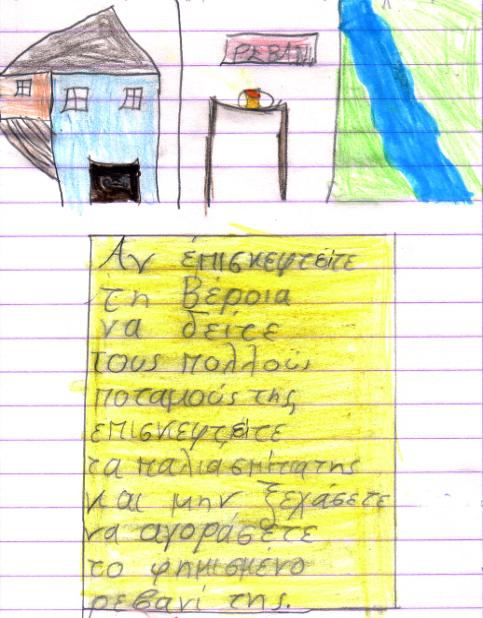 ΡΕΒΑΝΙ
Αν έπισκεφτείτε
τη Βέροια
να δείτε
τους πολλούς
ποταμούς της
επισκεφτείτε
τα παλια σπίτια της
και μην ξεχάσετε
να αγοράσετε
το φημισμένο
ρεβανί της.